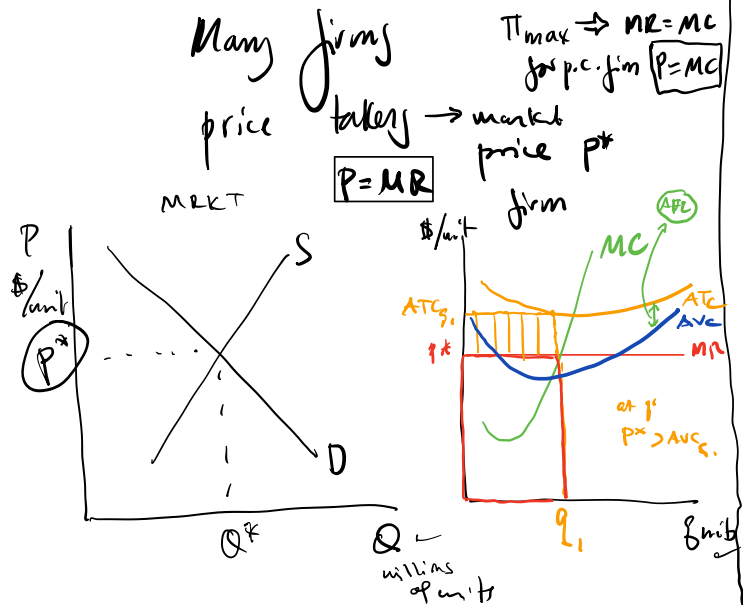 Many firms
πmax ⇒ MR = MC
for p.c. firm P = MC
price takers → market
price P*
P = MR
MRKT
firm
P
$/unit
S
P*
D
Q*
Q
millions
of units
$/unit
MC
AFC
ATCq₁
ATC
AVC
P*
MR
at q₁
P* > AVCq₁
q₁
q units